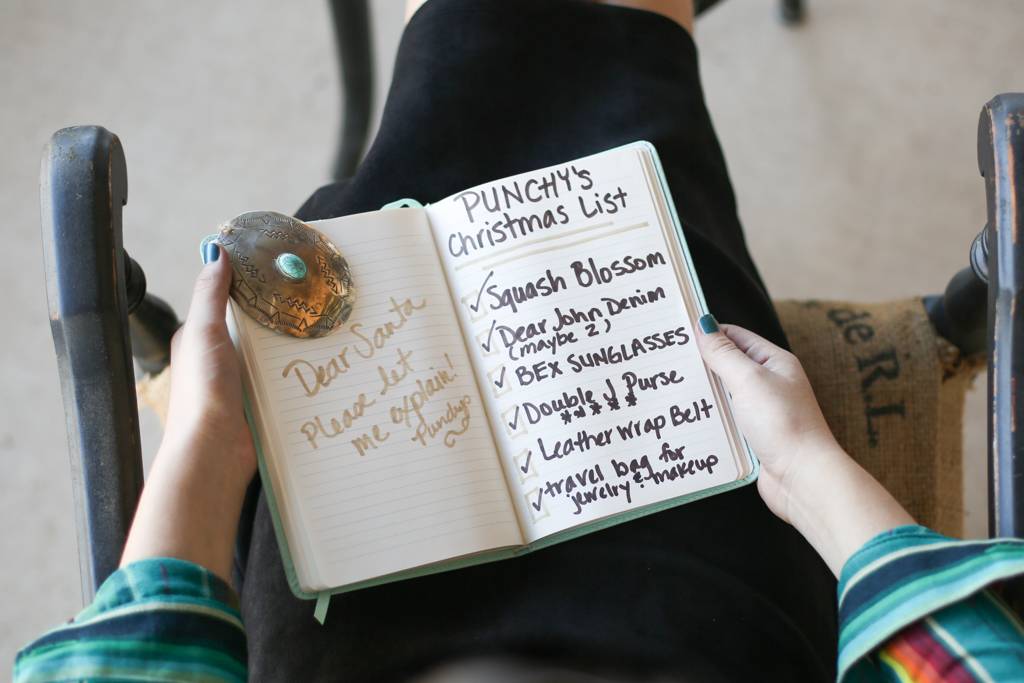 Dear Santa
Please let
me explain!
PUNCHY's
Christmas List
✓ Squash Blossom
✓ Dear John Denim
(maybe 2)
✓ BEX SUNGLASSES
✓ Double J Purse
*****
✓ Leather Wrap Belt
✓ travel bag for
jewelry & makeup
de R.L.